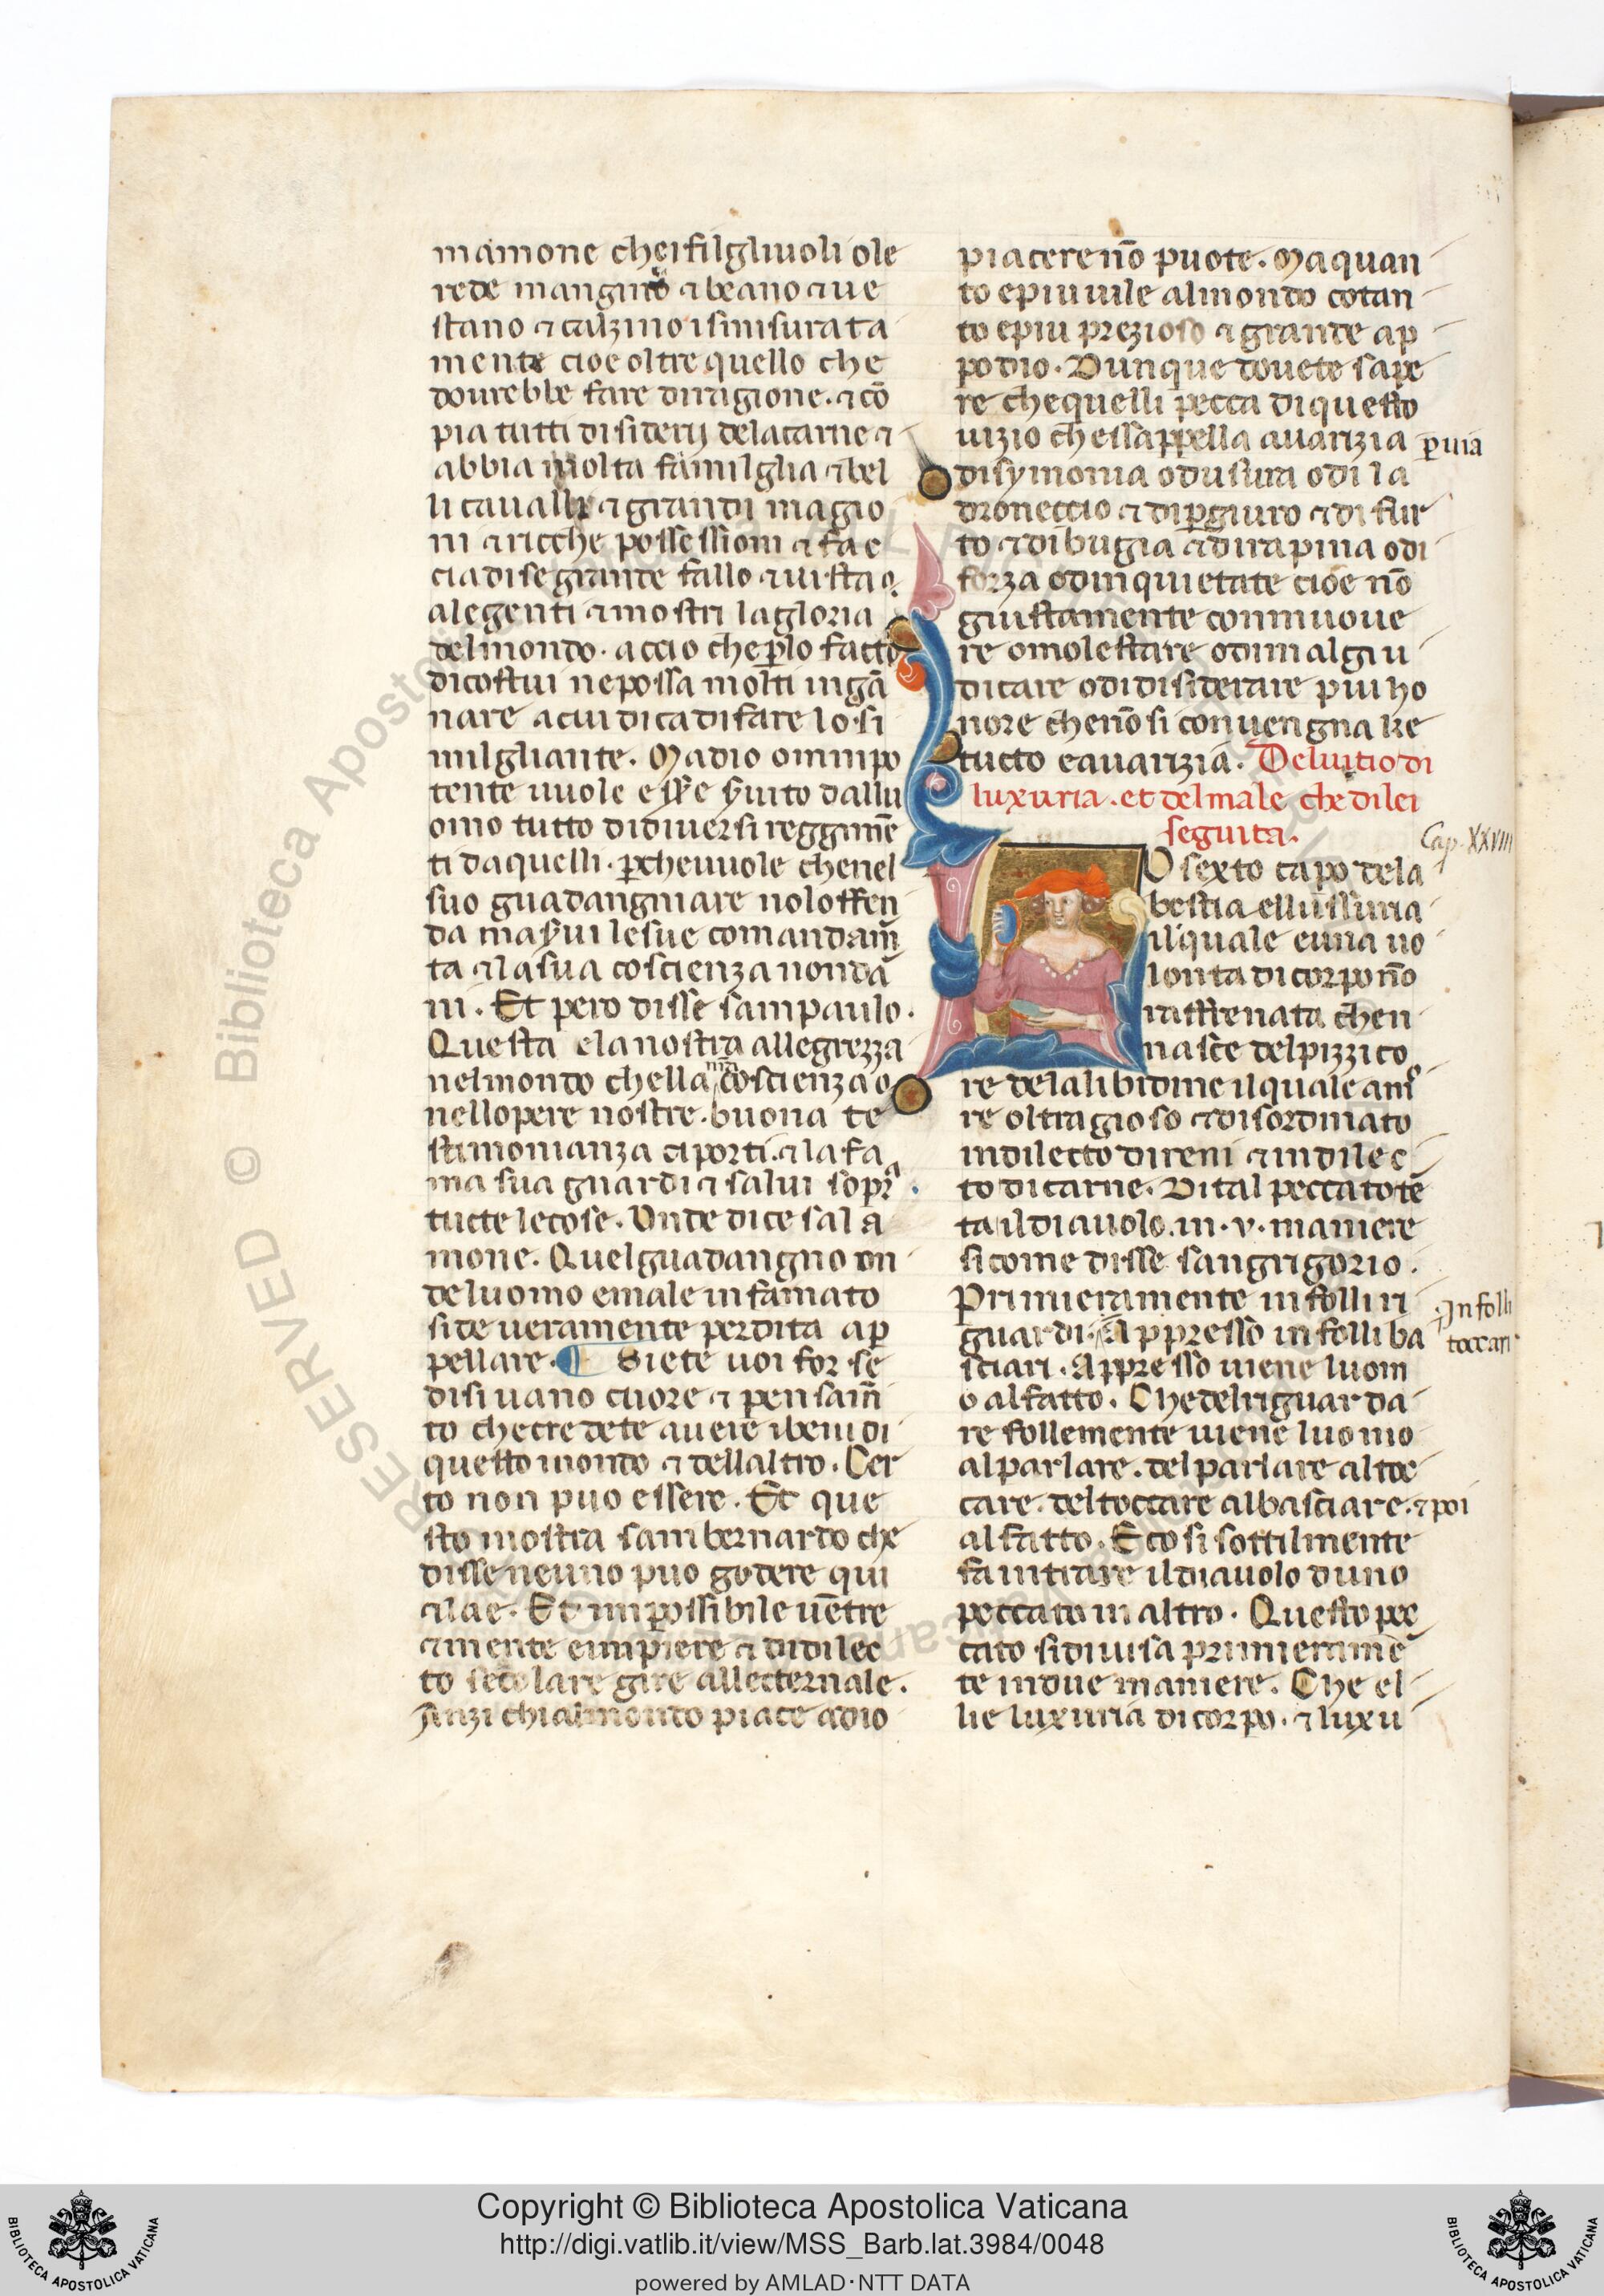 mamone cheifilgliuoli ole
rede mangino ⁊ beano ⁊ ue
stano ⁊ calzino ismisurata
mente cioe oltre quello che
dourebbe fare diragione. ⁊ cō
pia tutti disiderij delacarne ⁊
abbia molta familglia ⁊ bel
li caualli ⁊ grandi magio
ni ⁊ ricche possessioni ⁊ fac
cia di se grande fallo ⁊ uista
alegenti ⁊ mostri lagloria
delmondo. accio che ꝑlo facto
dicostui nepossa molti ingā
nare acui dica difare lo si
milgliante. Madio omnipo
tente uuole esse suito dallu
omo tutto didiuersi reggimē
ti daquelli. ꝑcheuuole chenel
suo guadangniare noloffen
da ma sui lesue comandam̄
ta ⁊ lasua coscienza nondā
ni. Et pero disse sampaulo.
Questa elanostra allegrezza
nelmondo chella nrā coscienza o
nellopere nostre. buona te
stimonianza ciporti. ⁊ la fa
ma sua guardi ⁊ salui sopra
tucte lecose. Unde dice sala
mone. Quelguadangno on
deluomo emale infamato
side ueramente perdita ap
pellare. ¶ Siete uoi for se
disi uano cuore ⁊ pensam̄
to checredete auere ibeni di
questo mondo ⁊ dellaltro. Cer
to non puo essere. Et que
sto mostra sambernardo che
disse neuno puo godere qui
⁊ lae. Et impossibile uentre
⁊ mente empiere ⁊ didilec
to secolare gire alletternale.
Anzi chialmondo piace adio
piacere nō puote. Ma quan
to epiu uile almondo cotan
to epiu prezioso ⁊ grande ap
podio. Dunque douete sape
re chequelli pecca di questo
uizio chessappella auarizia ꝑ uia
disymonia odusura odi la
droneccio ⁊ diꝑgiuro ⁊ di fur
to ⁊ di bugia ⁊ dirapina odi
forza odinquietate cioe nō
giustamente conmuoue
re omolestare odimalgiu
dicare odidisiderare piu ho
nore chenō si conuengna ke
tucto eauarizia. Deluitio di
luxuria. et delmale che dilei
seguita.
Cap. XXVIII
LO sexto capo dela
bestia ellussuria
ilquale euna uo
lonta di corpo nō
raffrenata chen
nasce delpizzico
re delalibidine ilquale
re oltragioso ⁊ disordinato
indilecto direni ⁊ indilec
to di carne. Dital peccato tē
ta ildiauolo. in. v. maniere
sicome disse sangrigorio.
Primieramente in folli ri
guardi. Appresso in folli ba
In folli
toccari
sciari. Appresso uiene luom
o al fatto. Chedelriguarda
re follemente uiene luomo
alparlare. delparlare altoc
care. deltoccare albasciare. ⁊ poi
al fatto. E cosi sottilmente
fa intrare ildiauolo duno
peccato in altro. Questo pec
cato sidiuisa primieramē
te indue maniere. Che el
lie luxuria dicorpo. ⁊ luxu
© Biblioteca Apostolica Vaticana
RESERVED
Copyright © Biblioteca Apostolica Vaticana
http://digi.vatlib.it/view/MSS_Barb.lat.3984/0048
powered by AMLAD·NTT DATA
BIBLIOTECA APOSTOLICA VATICANA
BIBLIOTECA APOSTOLICA VATICANA